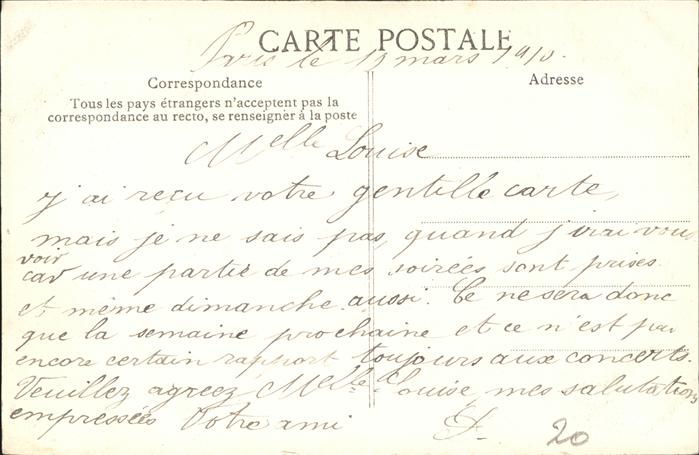 CARTE POSTALE
Paris le 19 mars 1910.
Correspondance
Adresse
Tous les pays étrangers n'acceptent pas la
correspondance au recto, se renseigner à la poste
Melle Louise
j'ai reçu votre gentille carte,
mais je ne sais pas, quand j'irai vous
voir
car une partie de mes soirées sont prises
et même dimanche aussi. Ce ne sera donc
que la semaine prochaine et ce n'est pas
encore certain rapport toujours aux concerts.
Veuillez agréez Melle Louise, mes salutations
empressées Votre ami
20